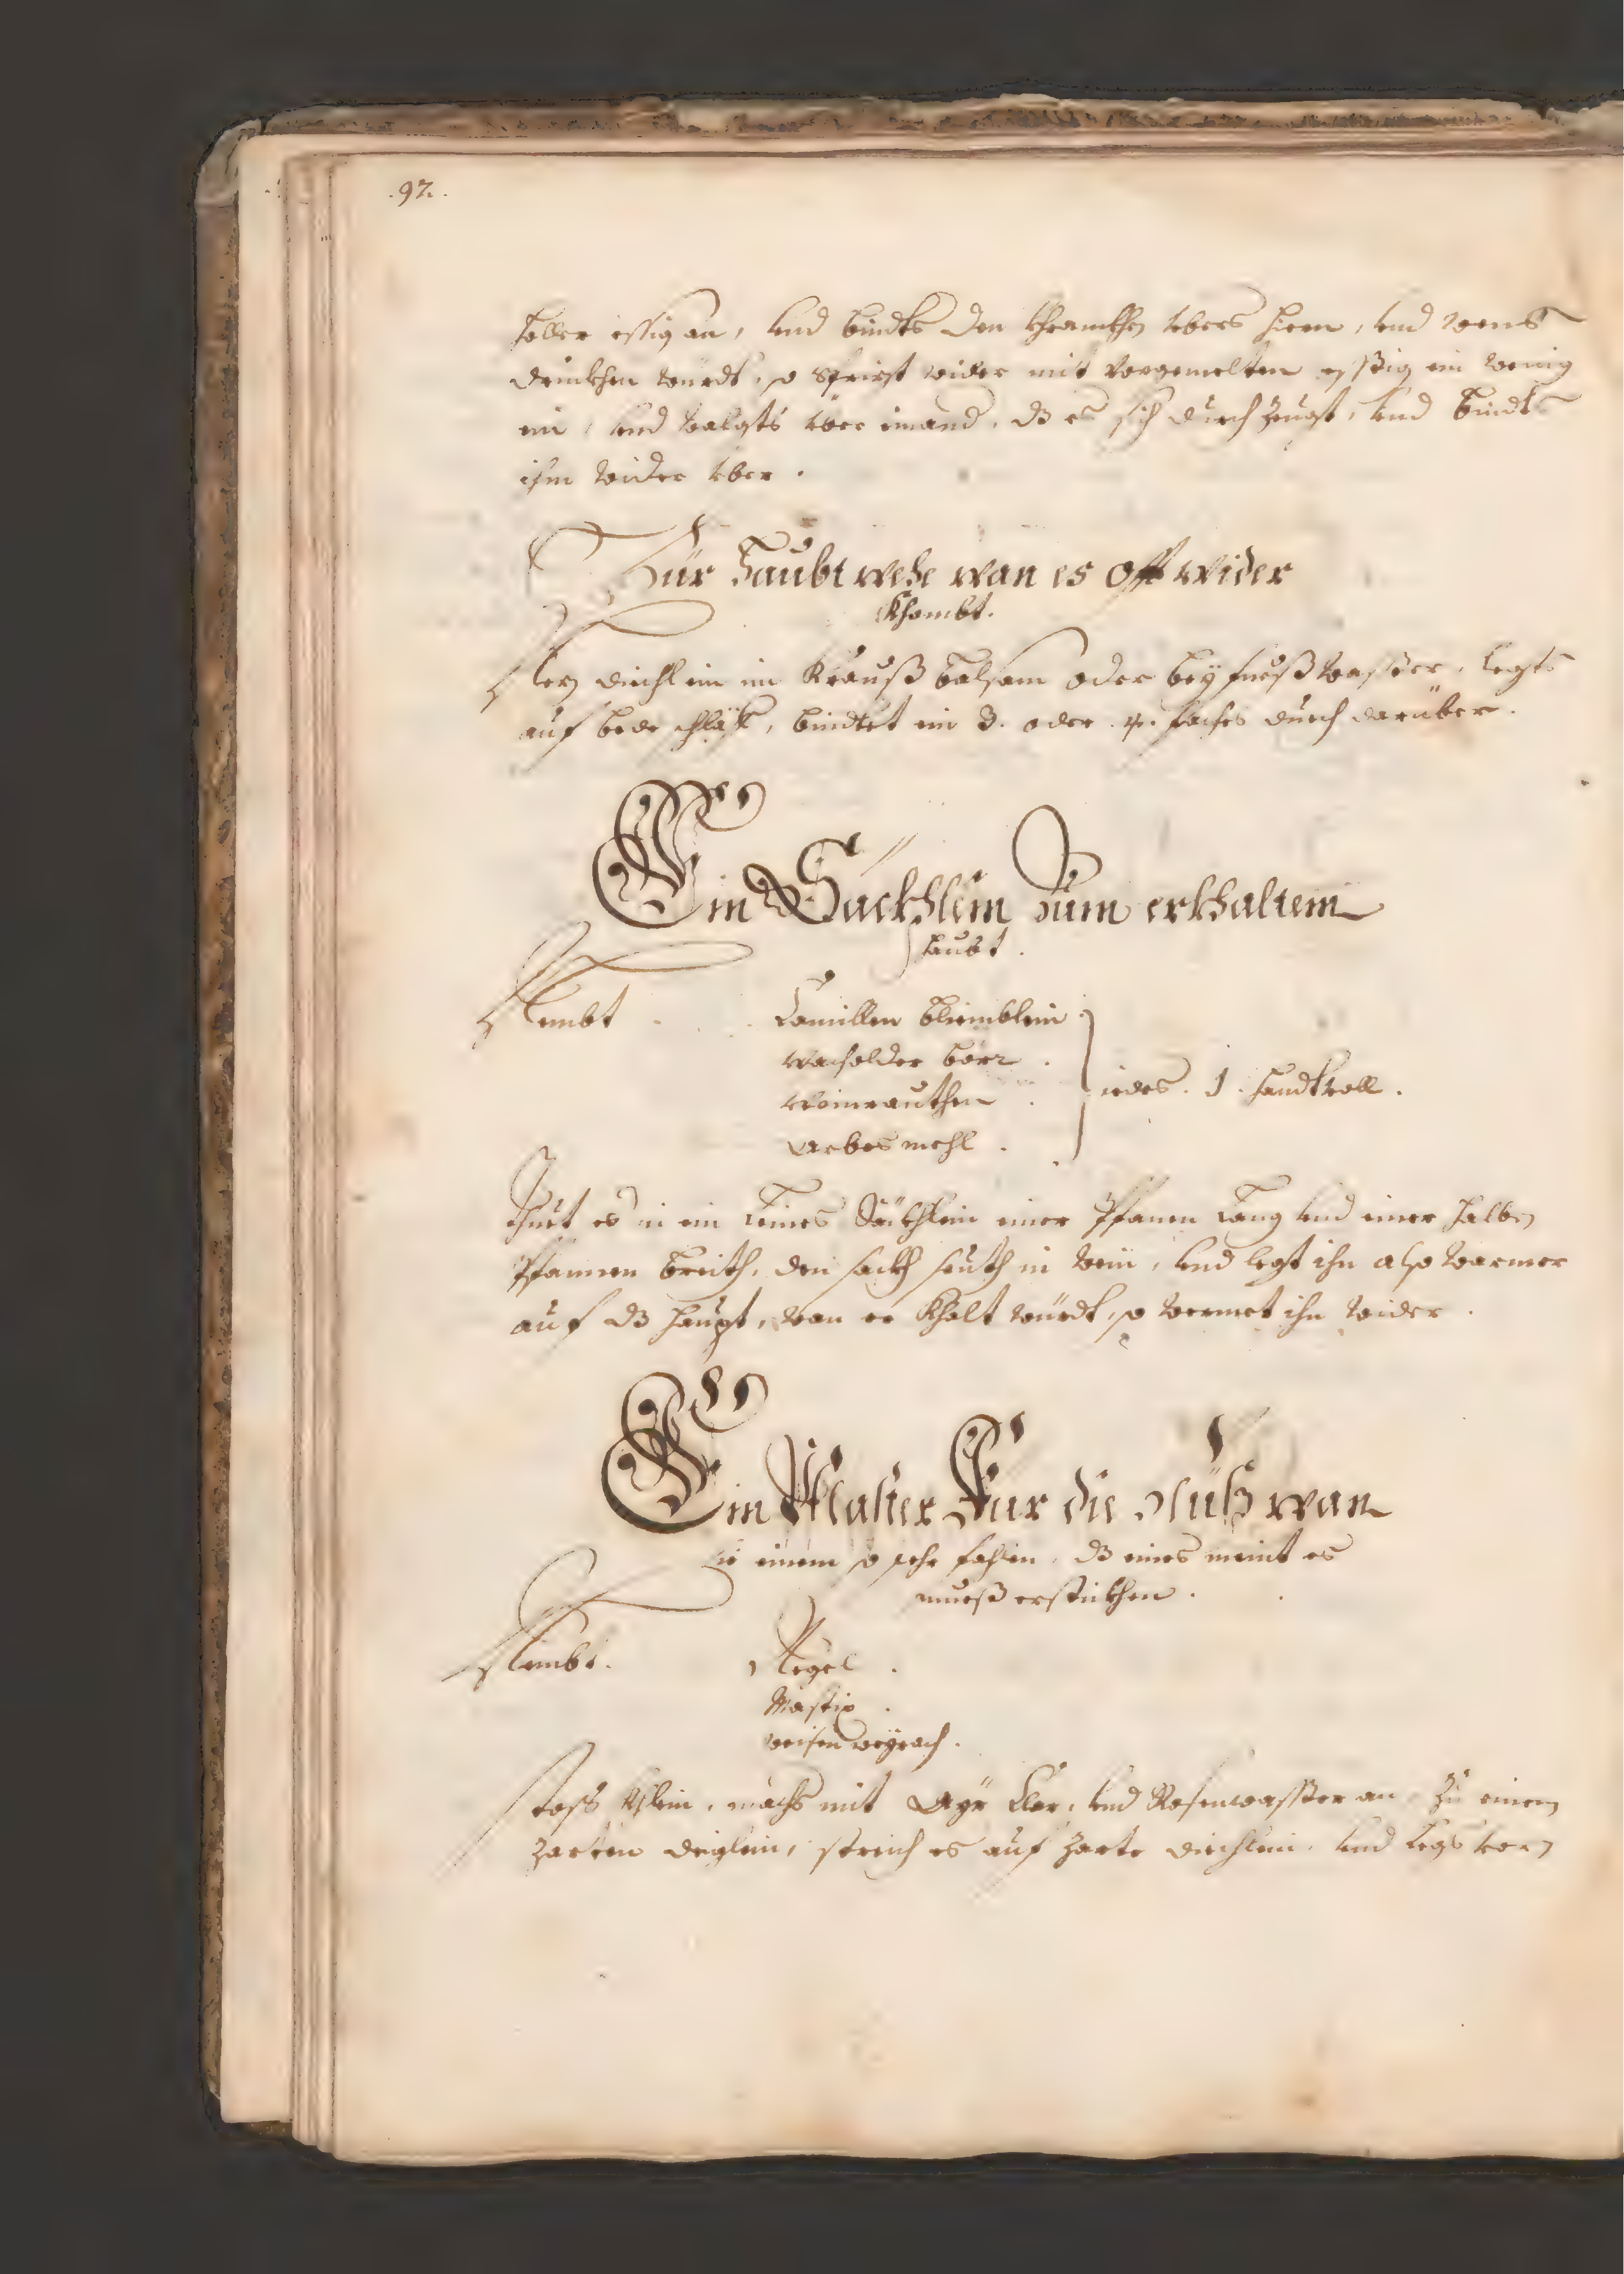 .92.
holler essig an, vnd bindts den khranckhen vbers hirn, vnd wens
drinkhen wurdt, so spritzt wider mit vorgemelten essig ein wenig
ein, vnd walgts vber einand, dz es sich durch zeugt, vnd bindts
ihm wider vber.
Für Haubt wehe wan es offt wider
khombt.
Nez diechlein in Krauß balsam oder beyfueß wasser, legts
auf bede schläff, bindtet ein 3. oder 4. faches duech darüber.
Ein Säckhlein Zum erkhalten
haubt.
Nembt Camillen bliemblein
wacholder bör
Weinrauthen
Arbes mehl
iedes . 1 . handtvoll.
Thuet es in ein leines Säckhlein einer Spannen lang vnd einer halben
Spannen breith, den sackh seuth in wein, vnd legt ihn also warmer
auf dz haupt, wan er khalt würdt, so wermet ihn wider.
Ein Pflaster Für die Flüß wan
sie einem so sehr fahlen, dz eines meint es
mueß ersticken.
Nembt. Negel.
Mastix.
weisen weyrach.
stoss khlein, machs mit Ayr klar, vnd Rosenwasser an, zu einem
zarten deiglein, streich es auf zarte diechlein, vnd legs vorn